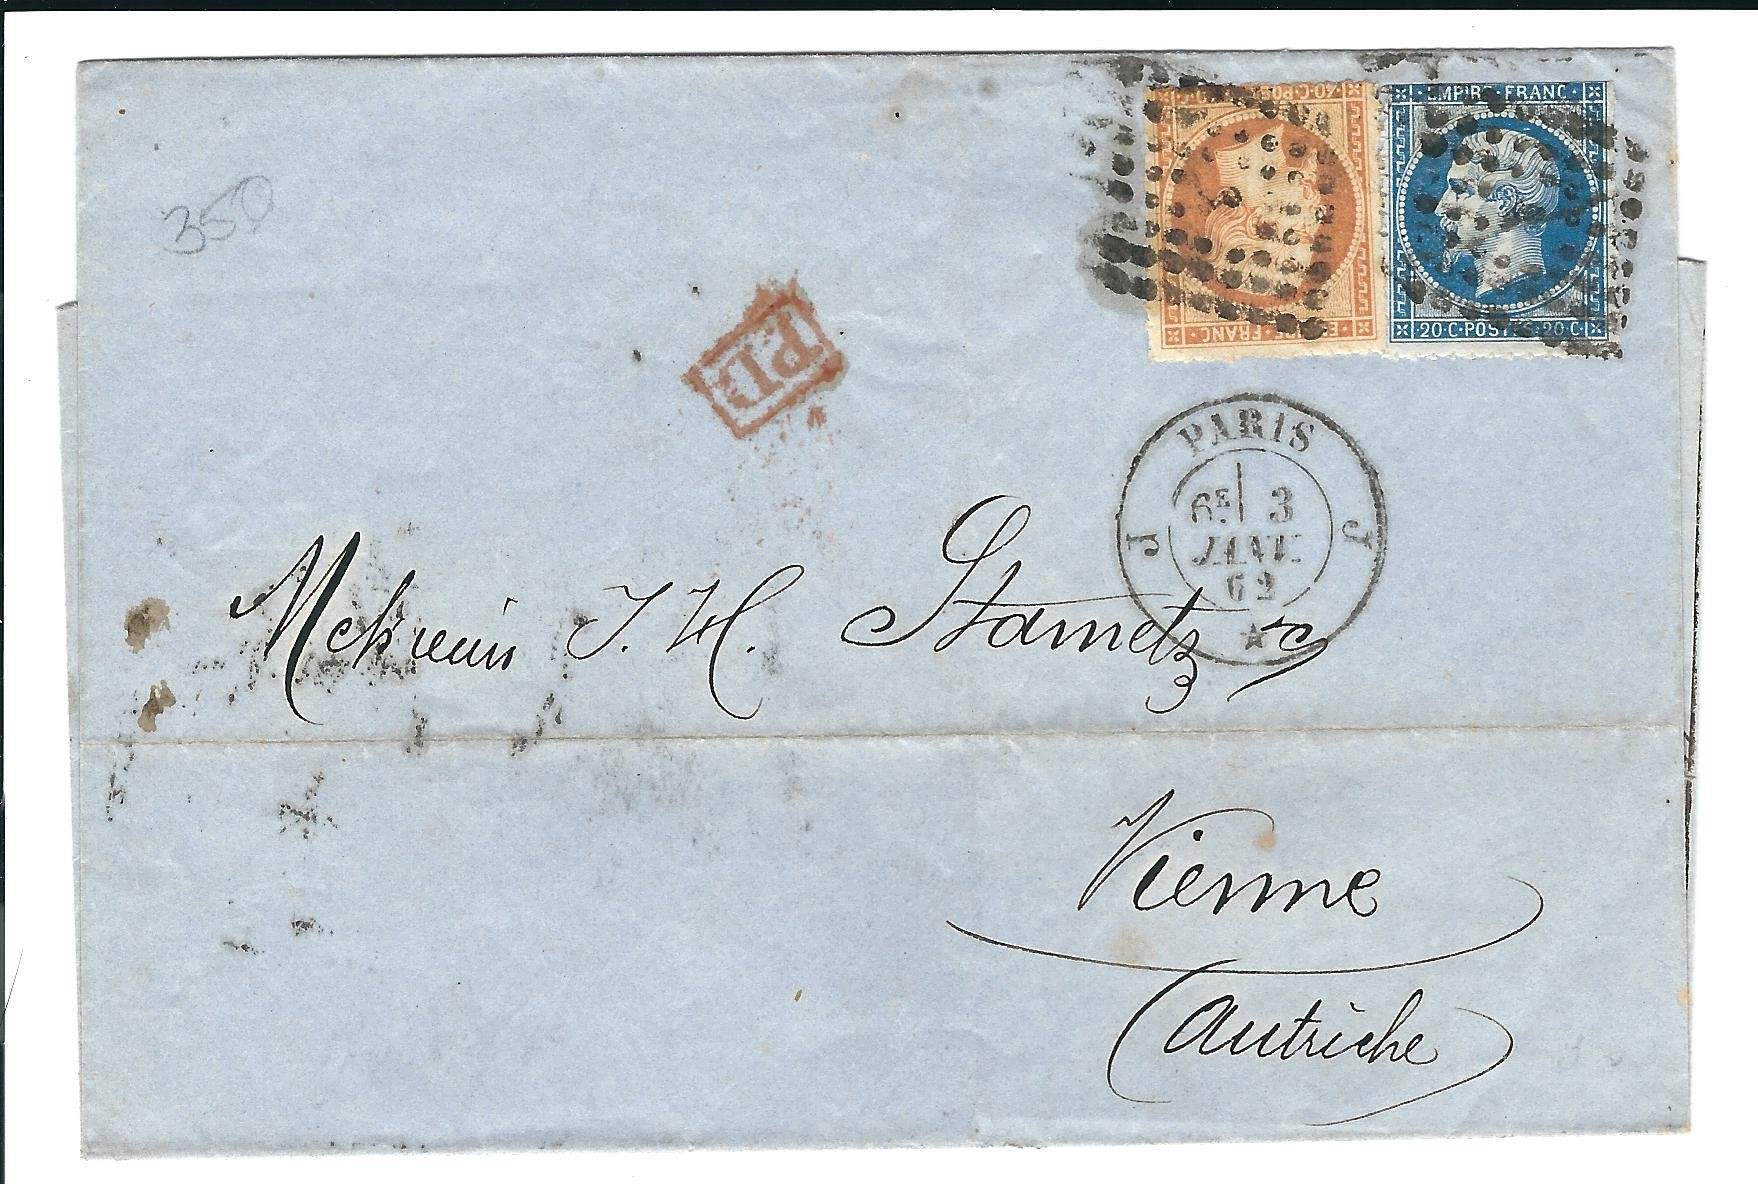 350
40·C·POS
E RE·FRANC
EMPIRE·FRANC·
·20·C·POSTES·20·C·
P.D
PARIS
J J
6E 3
JANV.
62
Messieurs J. H. Stametz & C
Vienne
(Autriche)